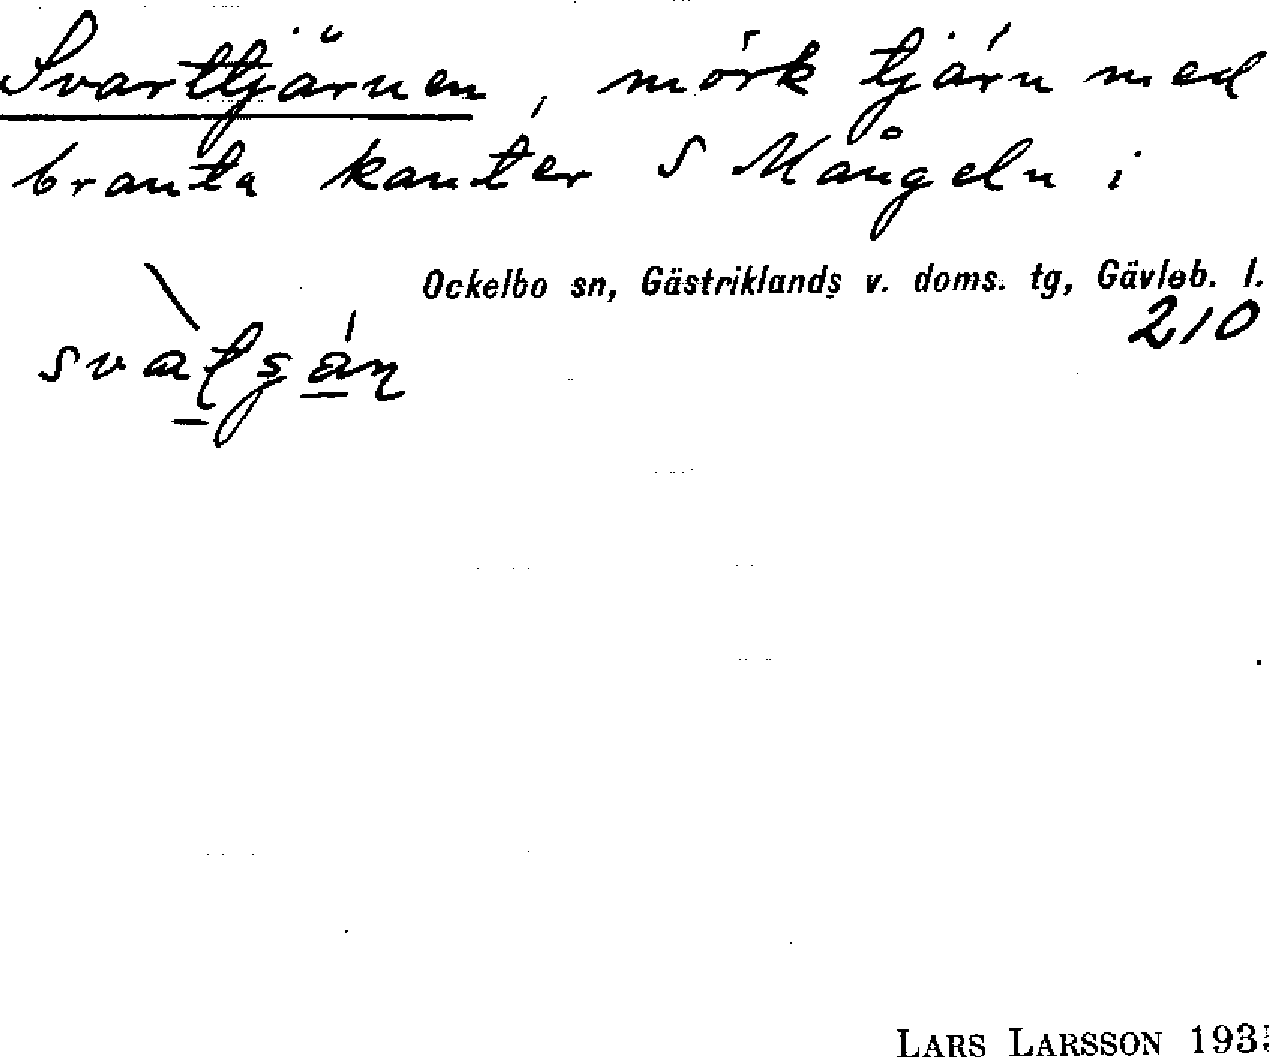 Svarttjärnen, mörk tjärn med
branta kanter S Mångeln i
Ockelbo sn, Gästriklands v. doms. tg, Gävleb. l.
210
LARS LARSSON 193